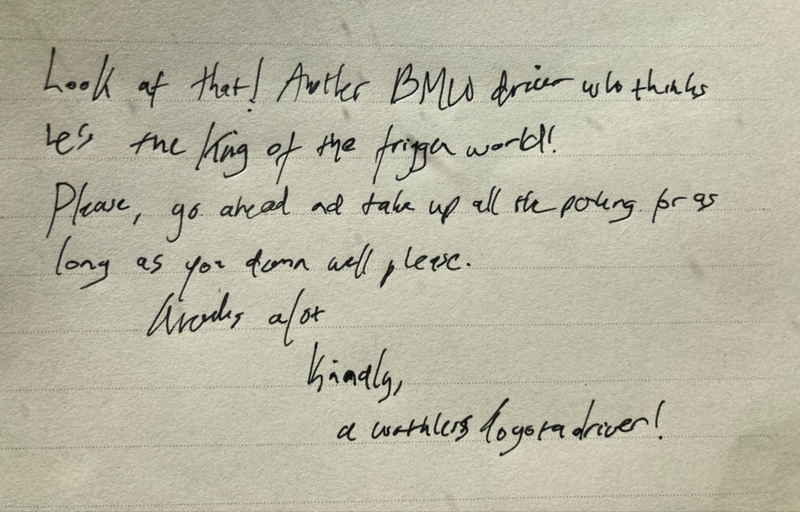 Look at that! Another BMW driver who thinks
he's the King of the friggen world!
Please, go ahead and take up all the parking for as
long as you damn well please.
Thanks alot
Kindly,
a worthless Toyota driver!